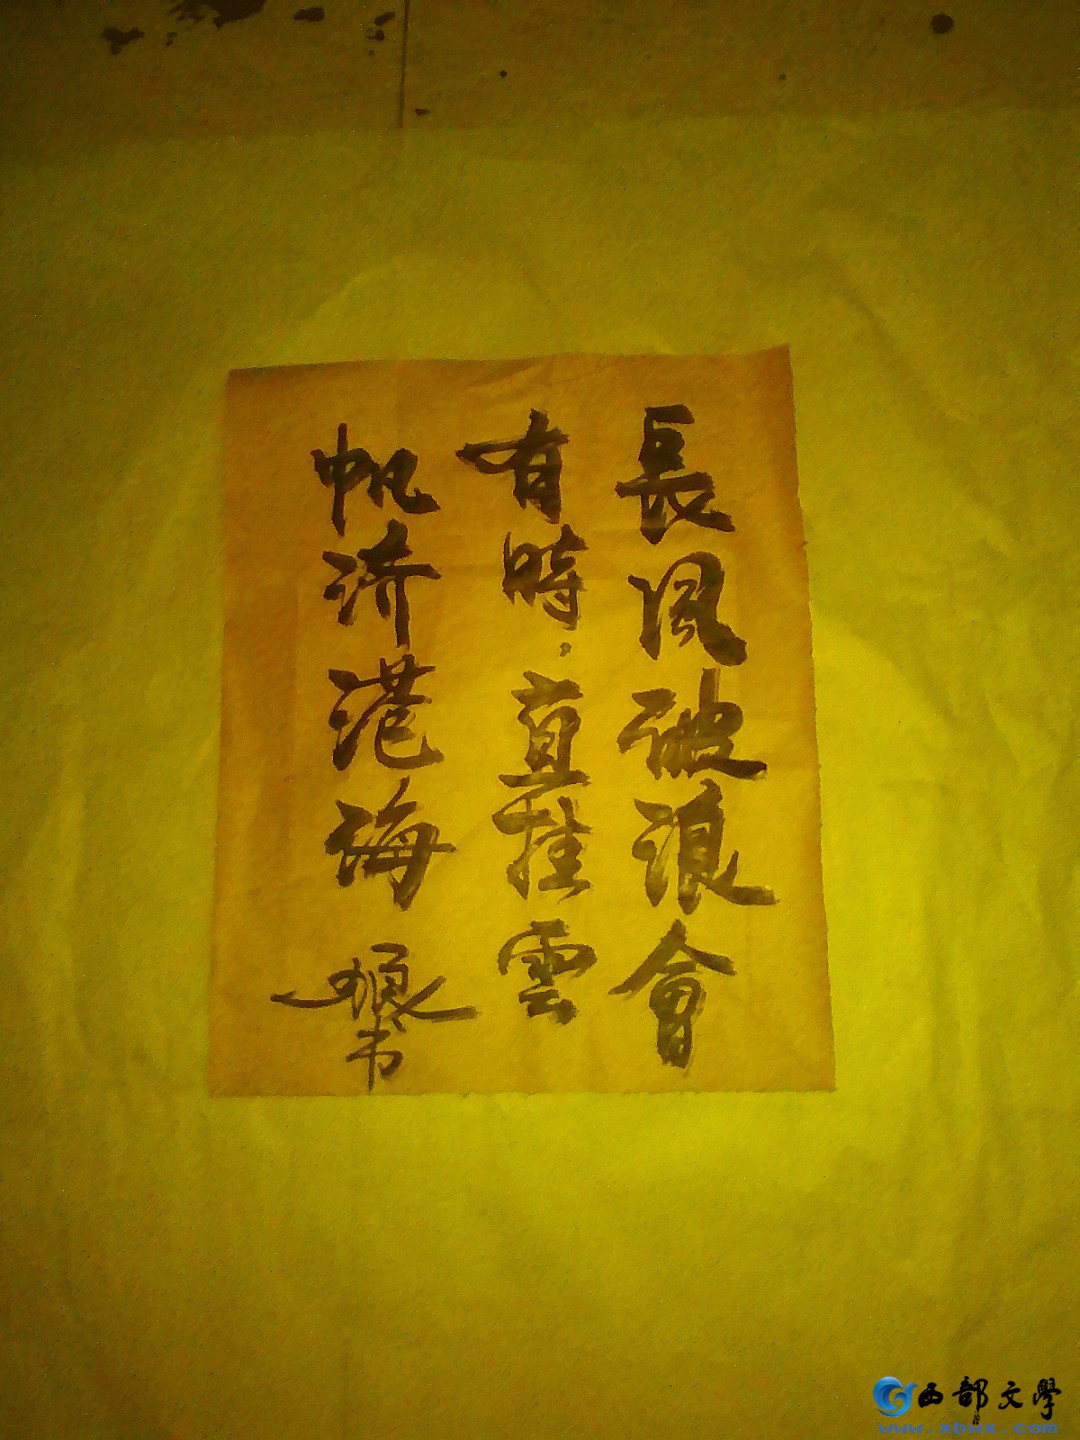 長風破浪會
有時.直挂雲
帆济港海
狼书
西部文學
www.xbwx.com